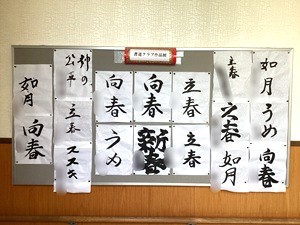 書道クラブ作品展
如月
うめ
向春
立春
立春
如月
立春
立春
向春
新春
向春
うめ
立春
ススキ
如月
向春